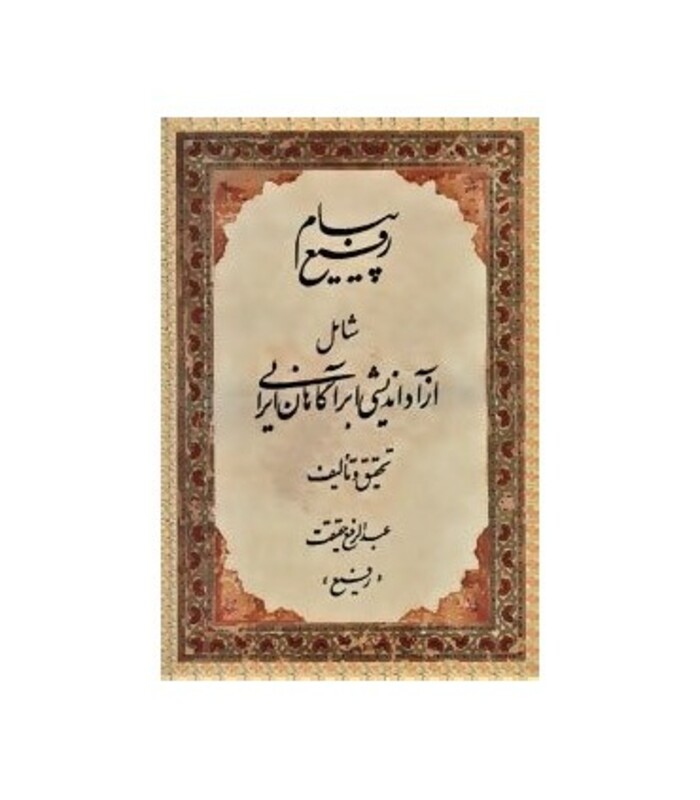 پیام
رفیع
شامل
آزاداندیشی ابرآگاهان ایرانی
تحقیق و تألیف
عبدالرفیع حقیقت
«رفیع»